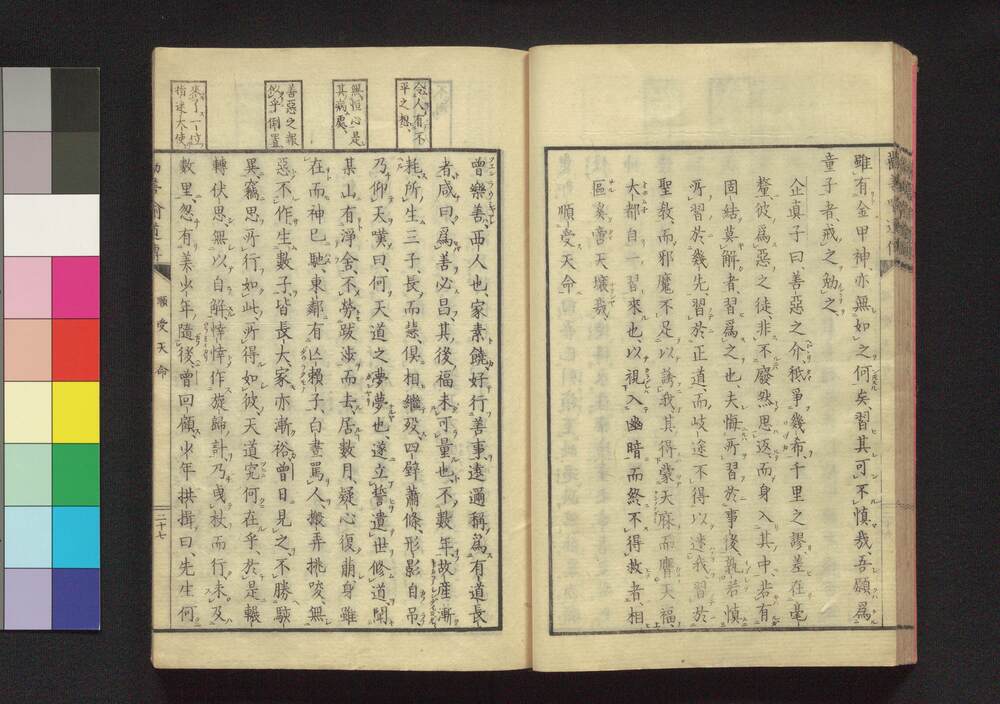 雖有金甲神、亦無如之何矣、習其可不慎哉、吾願為
童子者、戒之勉之
企真子曰、善惡之介、秪爭幾希、千里之謬、差在毫
釐、彼為惡之徒、非不廢然思返、而身入其中、若有
固結莫解者、習為之也、夫悔所習於事後、孰若慎
所習於幾先、習於正道、而岐途不得以迷我、習於
聖教、而邪魔不足以誘我、其得蒙天庥而膺天福、
大都自一習來也、以視入幽暗而終不得救者、相
區奚啻天壤哉
順受天命
令人有不
平之想、
無恒心是
其病處、
善惡之報
似乎倒置
來了一位
指迷大使
曾樂善、西人也、家素饒、好行善事、遠邇稱為有道長
者、咸曰、為善必昌、其後福未可量也、不數年、故產漸
耗、所生三子、長而慧、俱相繼歿、四壁蕭條、形影自吊、
乃仰天嘆曰、何天道之夢夢也、遂立誓遺世修道、聞
某山有淨舍、不勞跋涉而去、居數月、疑心復萌、身雖
在而神已馳、東鄰有亡賴子、白晝罵人、搬弄挑唆、無
惡不作、生數子、皆長大、家亦漸裕、曾日見之、不勝駭
異、竊思所行如此、所得如彼、天道究何在乎、於是輾
轉伏思、無以自解、悻悻作旋歸計、乃曳杖而行、未及
數里、忽有美少年隨後、曾回顧、少年拱揖曰、先生何
順受天命
二十七